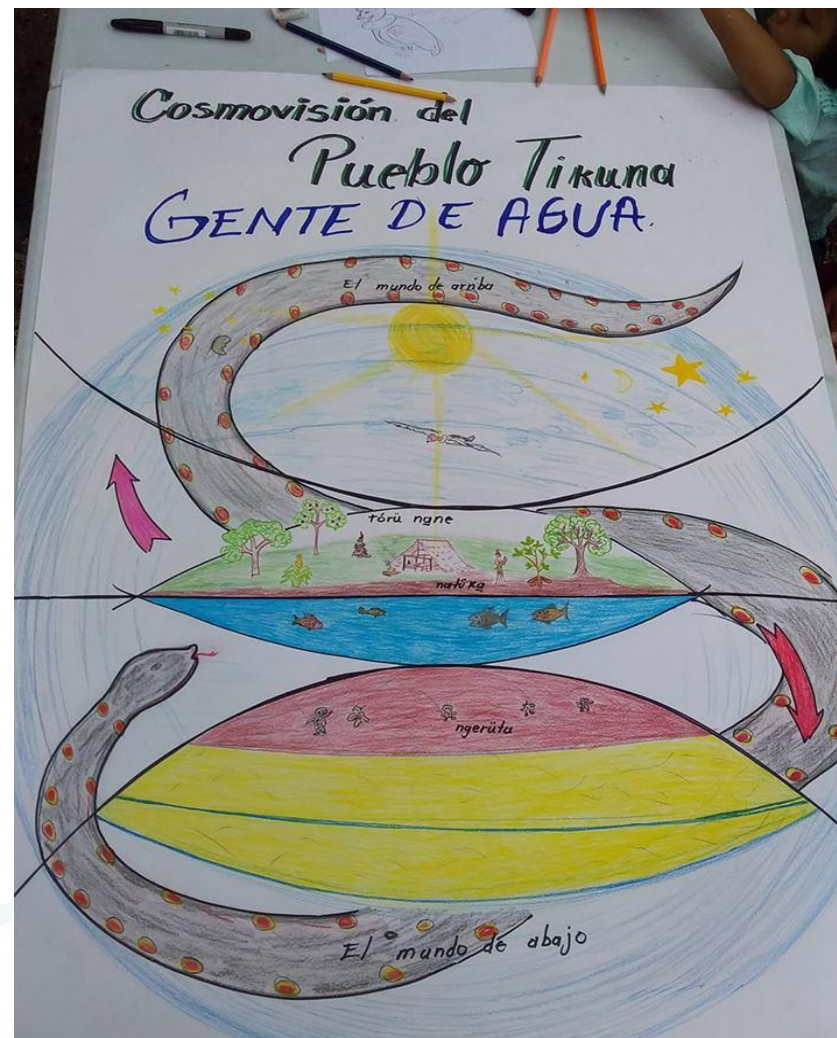 Cosmovisión del
Pueblo Tikuna
GENTE DE AGUA.
El mundo de arriba
tórü ngne
natüka
ngerüta
El mundo de abajo